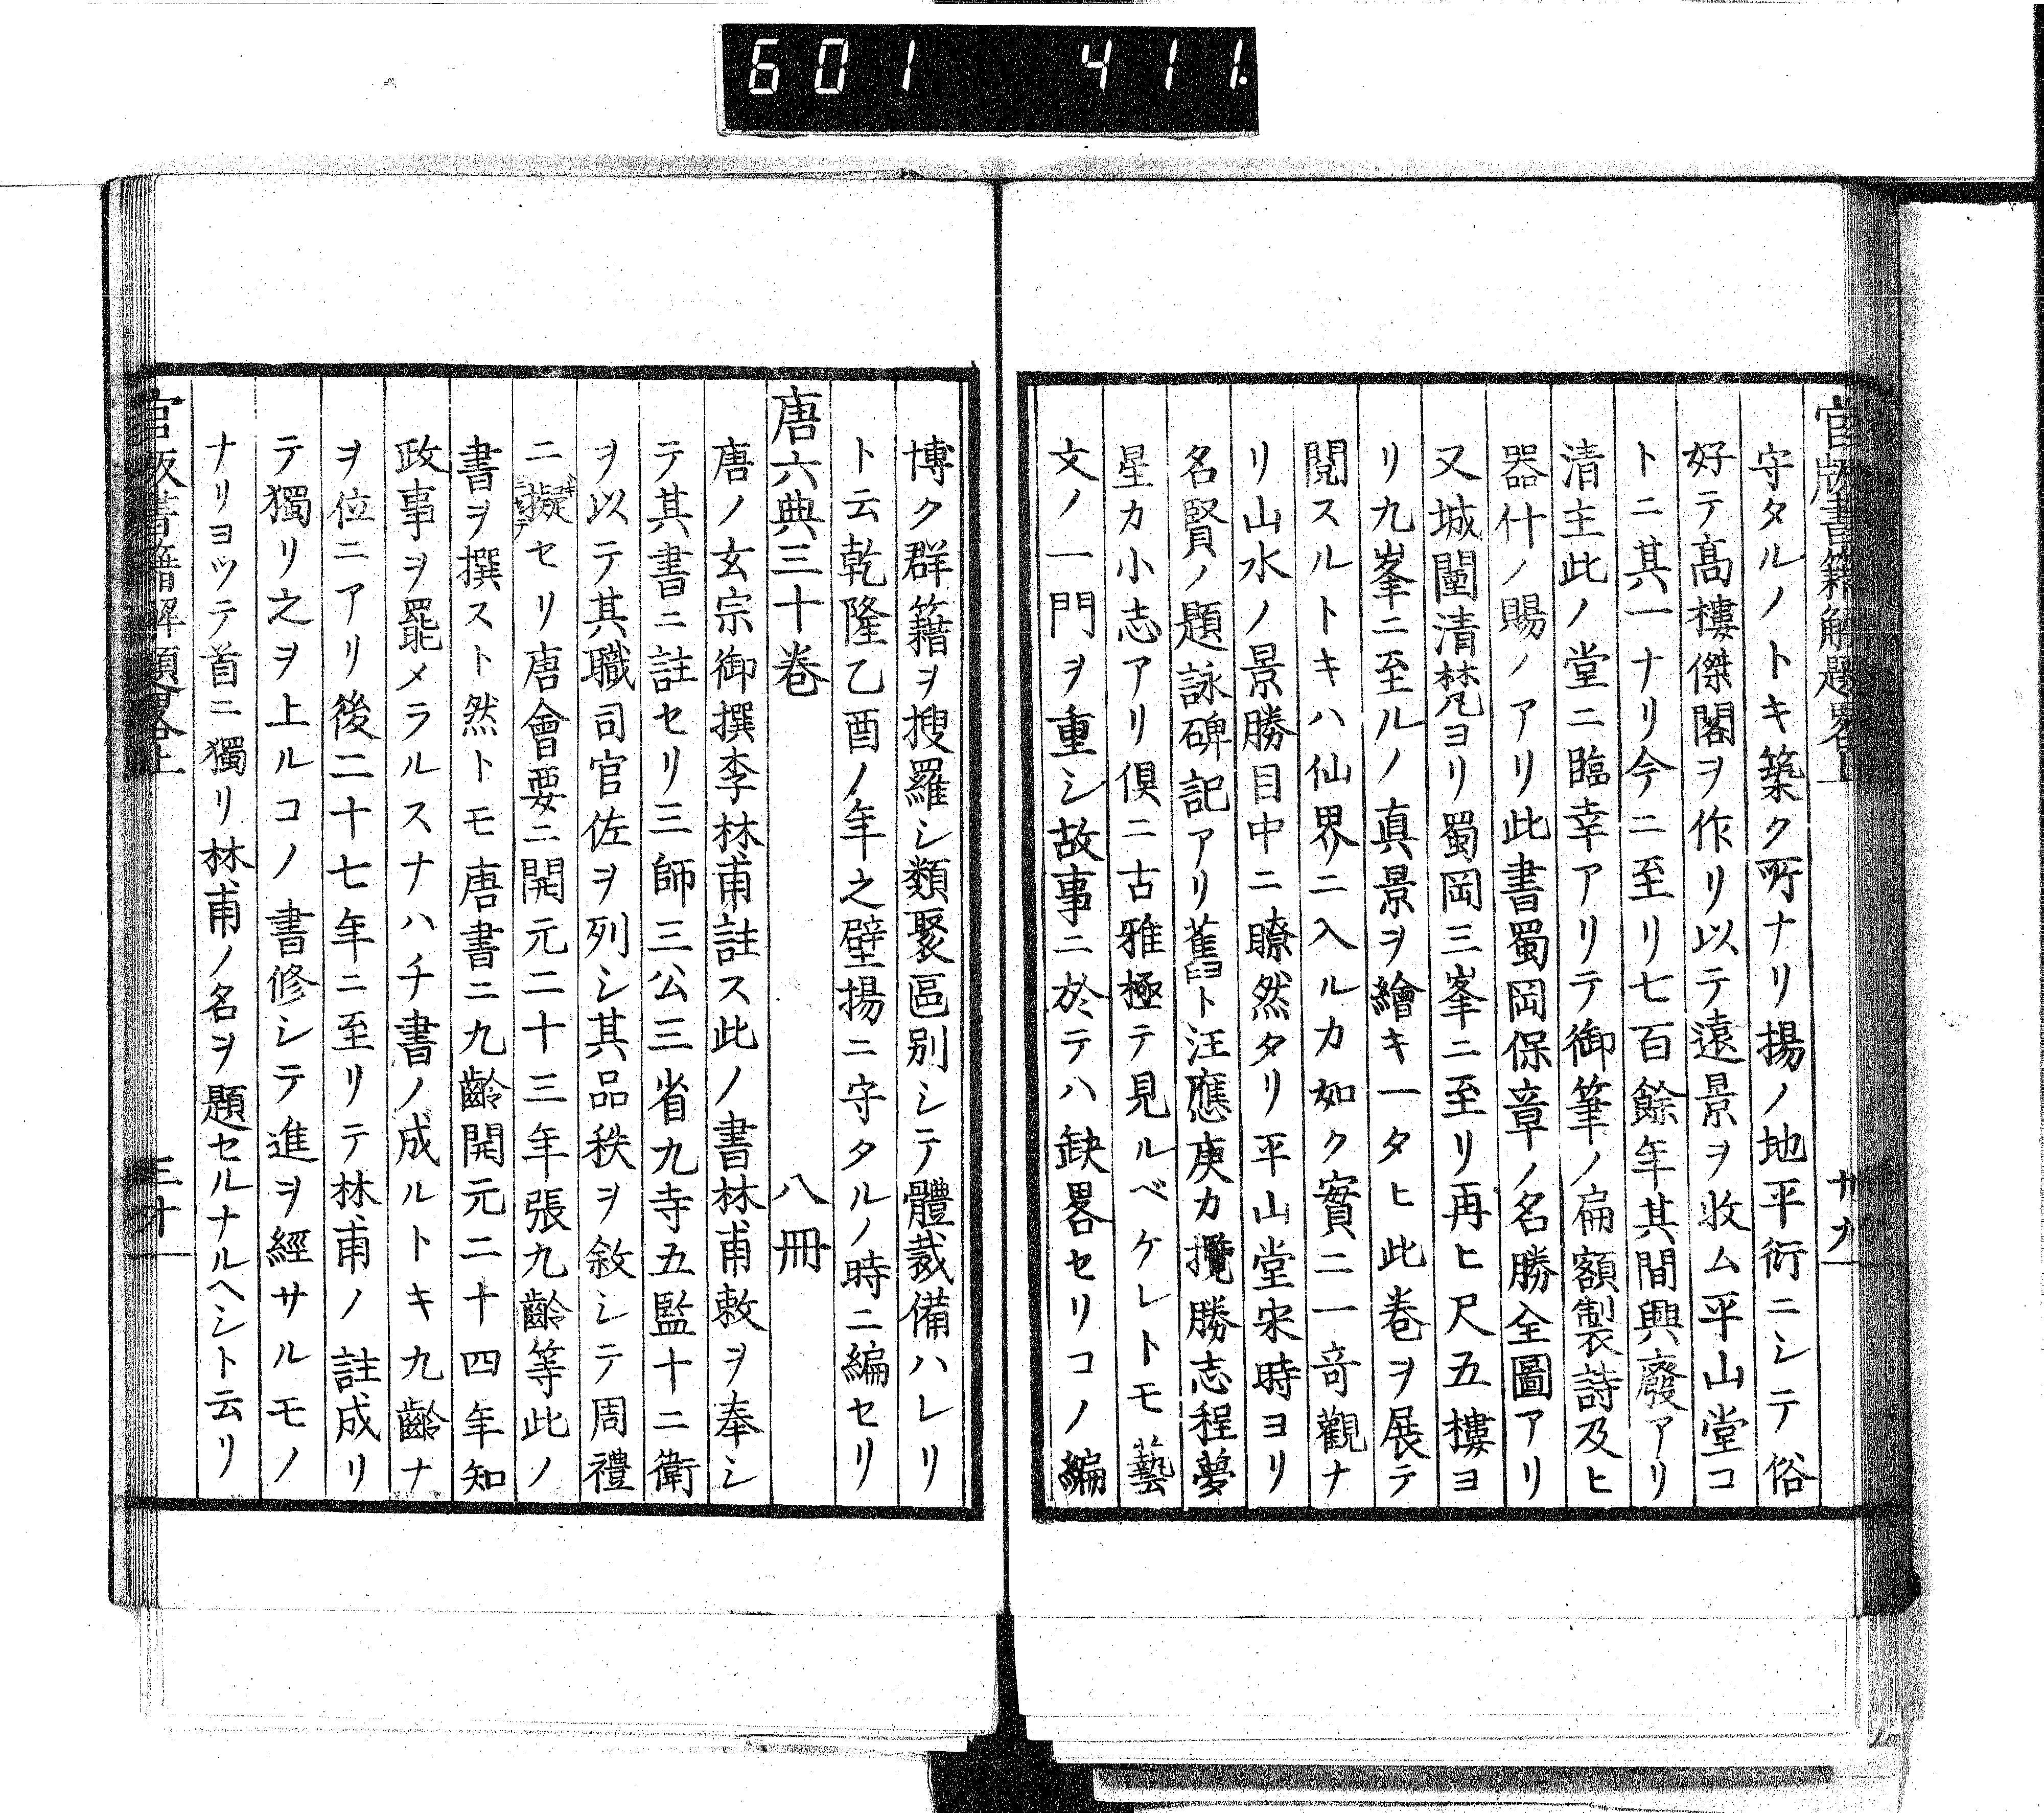 601 411.
官版書籍解題畧上
廿九
守タルノトキ築ク所ナリ揚ノ地平衍ニシテ俗
好テ髙樓傑閣ヲ作リ以テ遠景ヲ收ム平山堂コ
トニ其一ナリ今ニ至リ七百餘年其間興廢アリ
清主此ノ堂ニ臨幸アリテ御筆ノ扁額製詩及ヒ
器什ノ賜ノアリ此書蜀岡保章ノ名勝全圖アリ
又城闉清梵ヨリ蜀岡三峯ニ至リ再ヒ尺五樓ヨ
リ九峯ニ至ルノ真景ヲ繪キ一タヒ此巻ヲ展テ
閲スルトキハ仙界ニ入ルカ如ク實ニ一竒觀ナ
リ山水ノ景勝目中ニ瞭然タリ平山堂宋時ヨリ
名賢ノ題詠碑記アリ舊ト汪應庚カ攬勝志程夢
星カ小志アリ倶ニ古雅極テ見ルベケレトモ藝
文ノ一門ヲ重シ故事ニ於テハ缺畧セリコノ編
博ク群籍ヲ搜羅シ類聚區別シテ體裁備ハレリ
ト云乾隆乙酉ノ年之壁揚ニ守タルノ時ニ編セリ
唐六典三十巻 八冊
唐ノ玄宗御撰李林甫註ス此ノ書林甫敕ヲ奉シ
テ其書ニ註セリ三師三公三省九寺五監十二衛
ヲ以テ其職司官佐ヲ列シ其品秩ヲ敘シテ周禮
ニ擬セリ唐會要ニ開元二十三年張九齡等此ノ
書ヲ撰スト然トモ唐書ニ九齡開元二十四年知
政事ヲ罷メラルスナハチ書ノ成ルトキ九齡ナ
ヲ位ニアリ後二十七年ニ至リテ林甫ノ註成リ
テ獨リ之ヲ上ルコノ書修シテ進ヲ經サルモノ
ナリヨツテ首ニ獨リ林甫ノ名ヲ題セルナルヘシト云リ
官版書籍解題畧上
三十